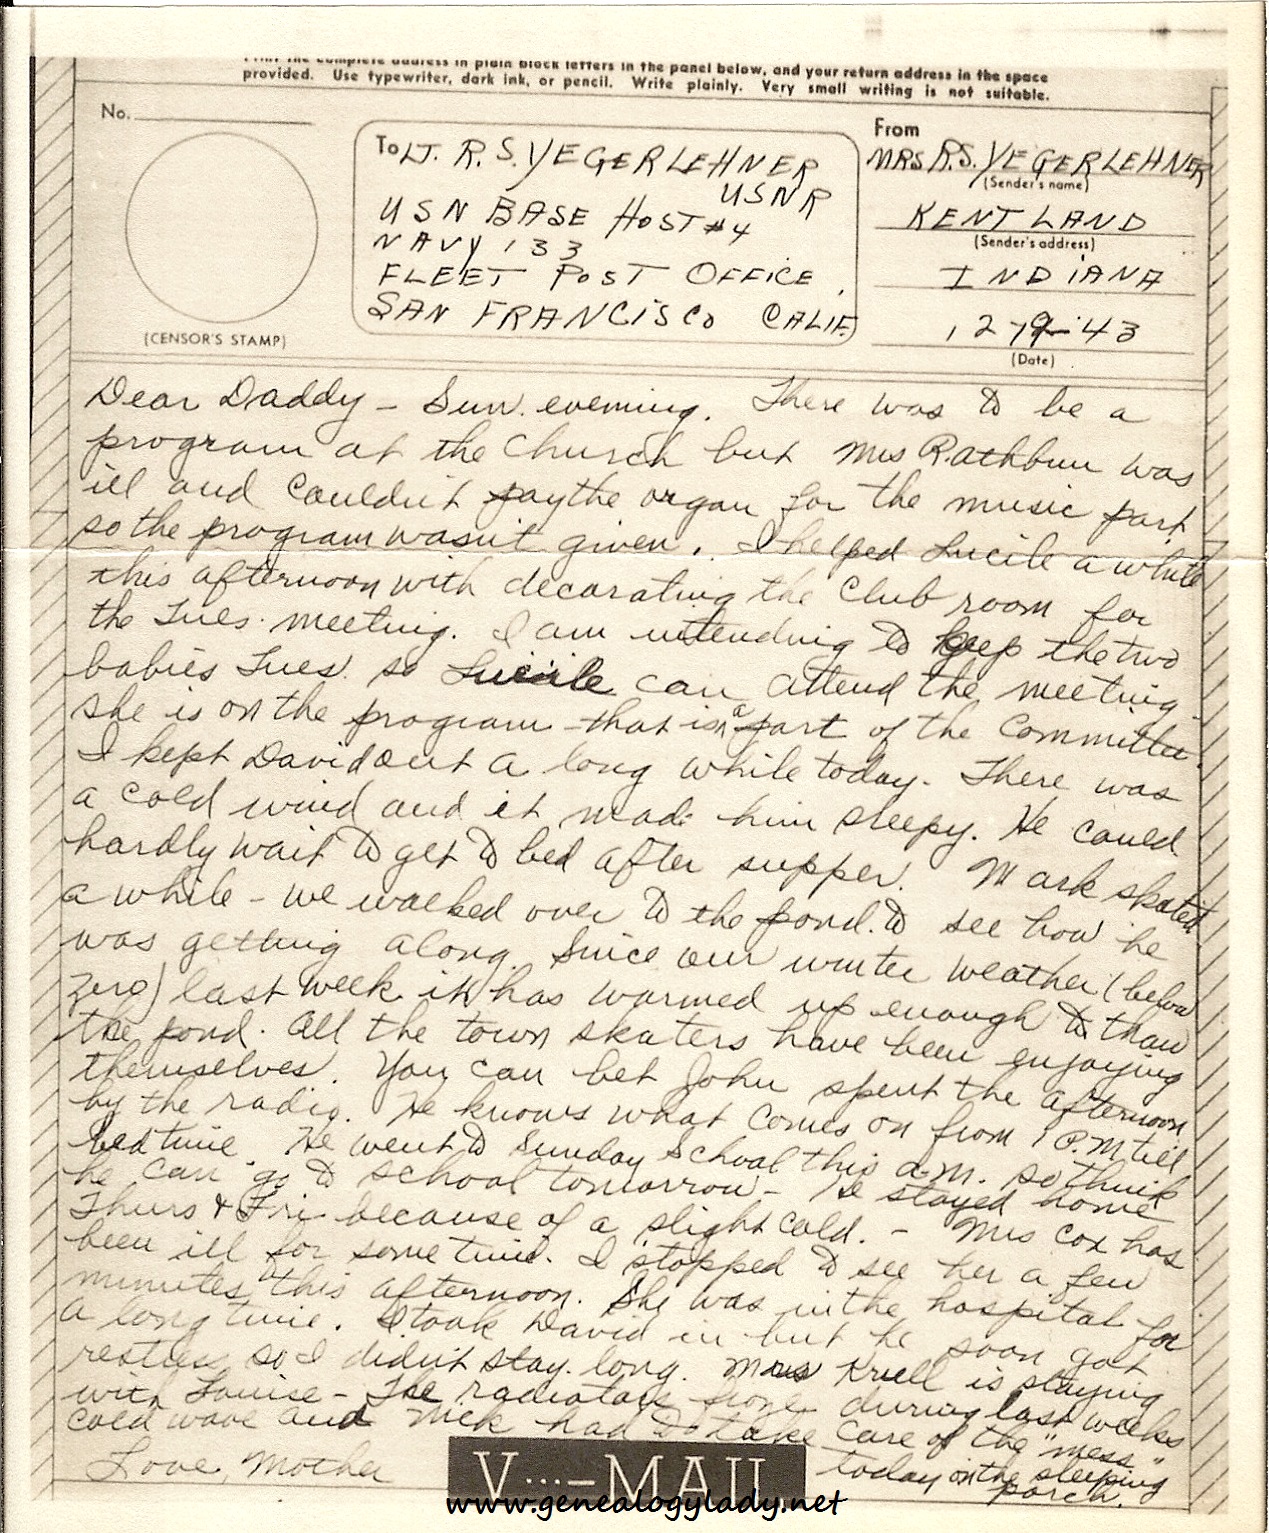 Print the complete address in plain block letters in the panel below, and your return address in the space
provided. Use typewriter, dark ink, or pencil. Write plainly. Very small writing is not suitable.
No.
(CENSOR'S STAMP)
To LT. R. S. YEGERLEHNER
USNR
USN BASE HOST #4
NAVY 133
FLEET POST OFFICE
SAN FRANCISCO CALIF.
From
MRS R.S. YEGERLEHNER
(Sender's name)
KENTLAND
(Sender's address)
INDIANA
12-9-43
(Date)
Dear Daddy - Sun. evening. There was to be a
program at the Church but Mrs Rathbun was
ill and couldn't pay the organ for the music part
so the program wasn't given. I helped Lucile a while
this afternoon with decorating the Club room for
the Tues. meeting. I am intending to keep the two
babies Tues. so Lucile can attend the meeting -
she is on the program - that is a part of the Committee.
I kept David out a long while today. There was
a cold wind and it made him sleepy. He could
hardly wait to get to bed after supper. Mark skated
a while - we walked over to the pond to see how he
was getting along. Since our winter weather (below
zero) last week it has warmed up enough to thaw
the pond. All the town skaters have been enjoying
themselves. You can bet John spent the afternoon
by the radio. He knows what comes on from 1 P.M till
bedtime. He went to Sunday School this a.m. so think
he can go to school tomorrow - He stayed home
Thurs & Fri because of a slight cold. - Mrs Cox has
been ill for some time. I stopped to see her a few
minutes this afternoon. She was in the hospital for
a long time. I took David in but he soon got
restless so I didn't stay long. Mrs Krull is staying
with Louise - The radiators froze during last weeks
cold wave and Nick had to take care of the "mess"
today on the sleeping
porch.
Love, Mother
V···-MAIL
www.genealogylady.net